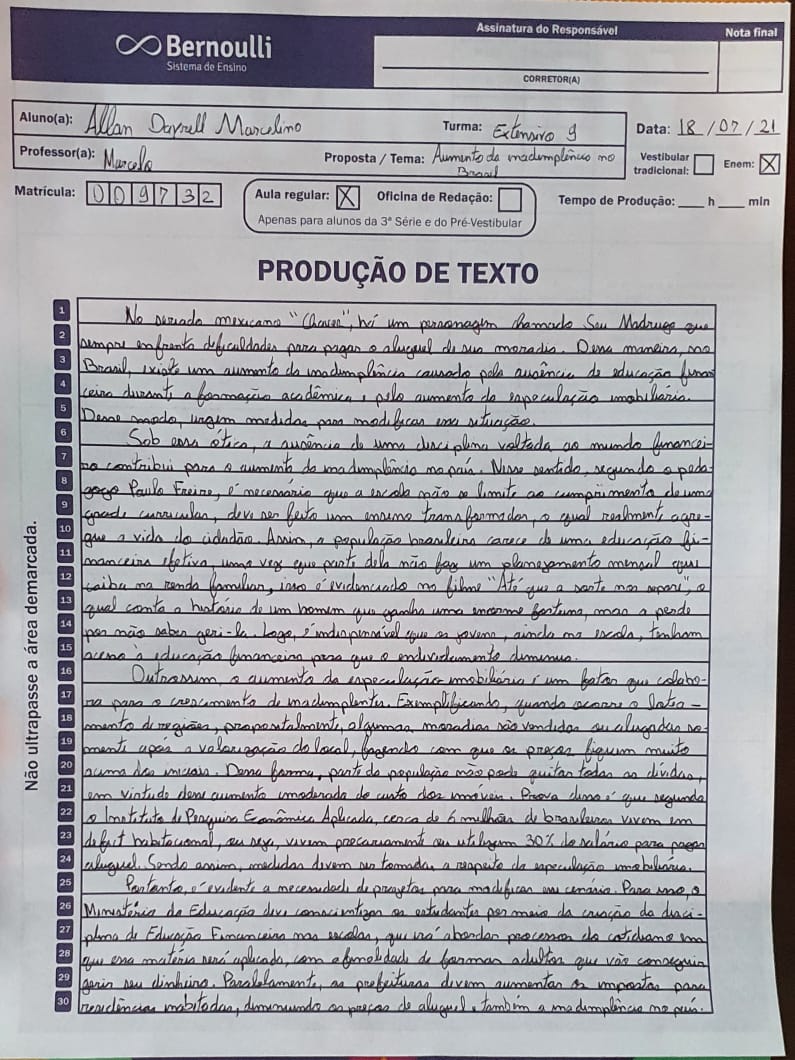 Bernoulli
Sistema de Ensino
Assinatura do Responsável
Nota final
CORRETOR(A)
Aluno(a): Allan Dayrell Marcelino
Turma: Extensivo 9
Data: 18/07/21
Professor(a): Marcelo
Proposta / Tema: Aumento da inadimplência no
Brasil
Vestibular tradicional:
Enem: X
Matrícula: 009732
Aula regular: X
Oficina de Redação:
Apenas para alunos da 3ª Série e do Pré-Vestibular
Tempo de Produção: ____ h ____ min
PRODUÇÃO DE TEXTO
Não ultrapasse a área demarcada.
1 No seriado mexicano "Chaves", há um personagem chamado Seu Madruga que
2 sempre enfrenta dificuldades para pagar o aluguel de sua moradia. Dessa maneira, no
3 Brasil, existe um aumento da inadimplência causado pela ausência de educação finan
4 ceira durante a formação acadêmica e pelo aumento da especulação imobiliária.
5 Desse modo, urgem medidas para modificar essa situação.
6 Sob essa ótica, a ausência de uma disciplina voltada ao mundo financei-
7 ro contribui para o aumento da inadimplência no país. Nesse sentido, segundo o peda-
8 gogo Paulo Freire, é necessário que a escola não se limite ao cumprimento de uma
9 grade curricular, deve ser feito um ensino transformador, o qual realmente agre-
10 gue a vida do cidadão. Assim, a população brasileira carece de uma educação fi-
11 nanceira efetiva, uma vez que parte dela não faz um planejamento mensal que
12 caiba na renda familiar, isso é evidenciado no filme "Até que a sorte nos separe", o
13 qual conta a história de um homem que ganha uma enorme fortuna, mas a perde
14 por não saber geri-la. Logo, é indispensável que os jovens, ainda na escola, tenham
15 acesso à educação financeira para que o endividamento diminua.
16 Outrossim, o aumento da especulação imobiliária é um fator que colabo-
17 ra para o crescimento de inadimplentes. Exemplificando, quando ocorre o lotea-
18 mento de regiões, propositalmente, algumas moradias são vendidas ou alugadas so-
19 mente após a valorização do local, fazendo com que os preços fiquem muito
20 acima dos iniciais. Dessa forma, parte da população não pode quitar todas as dívidas,
21 em virtude desse aumento imoderado do custo dos imóveis. Prova disso é que segundo
22 o Instituto de Pesquisa Econômica Aplicada, cerca de 6 milhões de brasileiros vivem em
23 deficit habitacional, ou seja, vivem precariamente ou utilizam 30% do salário para pagar
24 aluguel. Sendo assim, medidas devem ser tomadas a respeito da especulação imobiliária.
25 Portanto, é evidente a necessidade de projetos para modificar esse cenário. Para isso, o
26 Ministério da Educação deve conscientizar os estudantes por meio da criação da disci-
27 plina de Educação Financeira nas escolas, que irá abordar processos do cotidiano em
28 que essa matéria será aplicada, com a finalidade de formar adultos que vão conseguir
29 gerir seu dinheiro. Paralelamente, as prefeituras devem aumentar os impostos para
30 residências inabitadas, diminuindo os preços de aluguel e também a inadimplência no país.